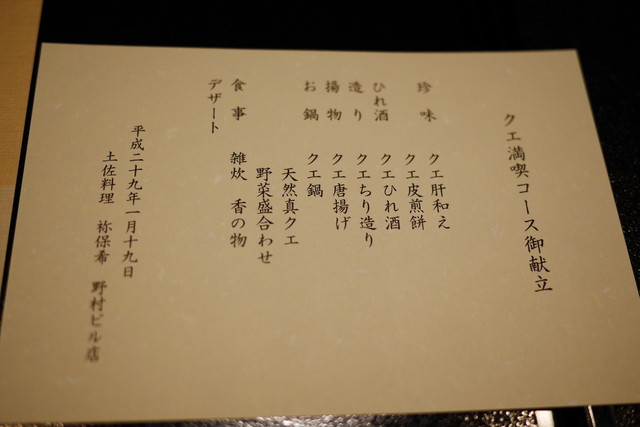 クエ満喫コース御献立
珍味 クエ肝和え
クエ皮煎餅
ひれ酒 クエひれ酒
造り クエちり造り
揚物 クエ唐揚げ
お鍋 クエ鍋
天然真クエ
野菜盛合わせ
食事 雑炊 香の物
デザート
平成二十九年一月十九日
土佐料理 祢保希 野村ビル店